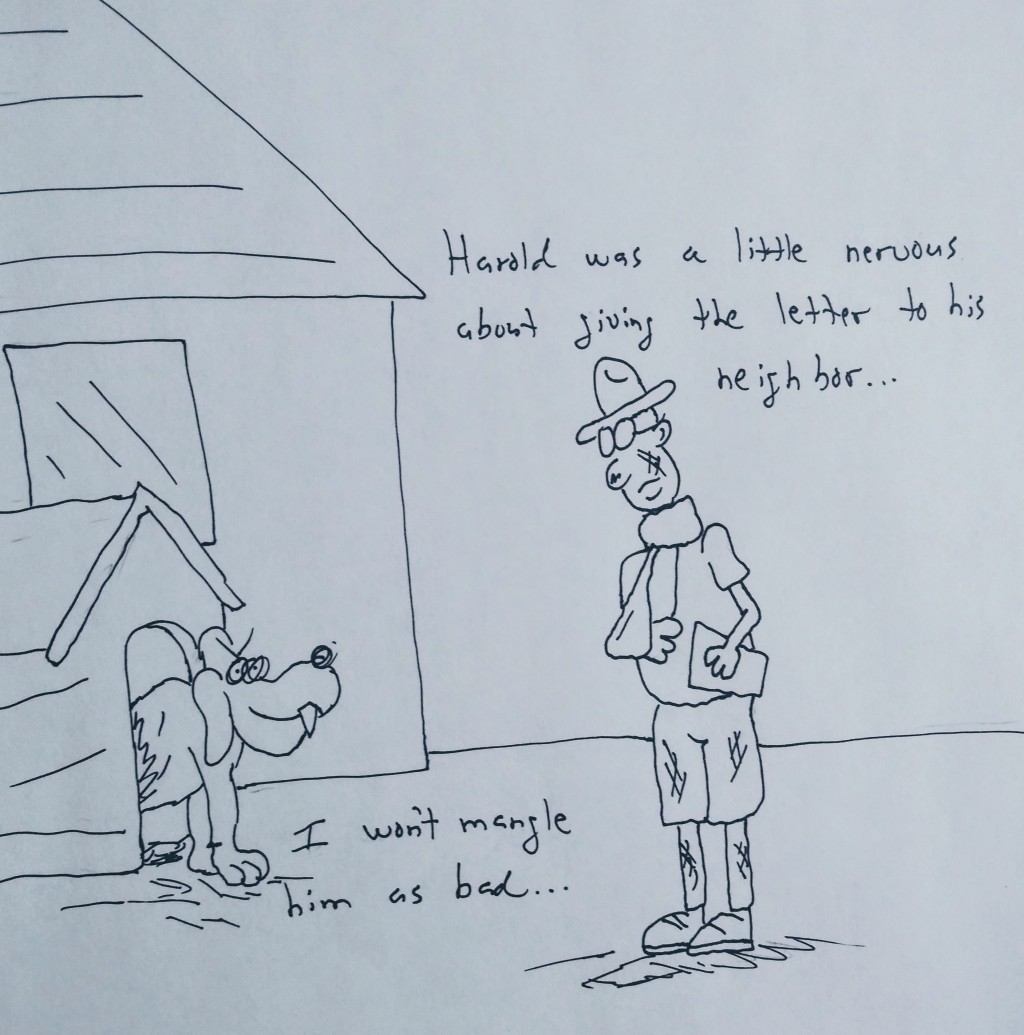 Harold was a little nervous
about giving the letter to his
neighbor...
I won't mangle
him as bad...